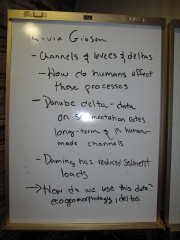 Liviu Giosan
- Channels & levees & deltas
- How do humans affect
these processes
- Danube delta - data
on sedimentation rates
long-term & in human-
made channels
- Daming has reduced sediment
loads
→ How do we use this data?
ecogeomorphology, deltas